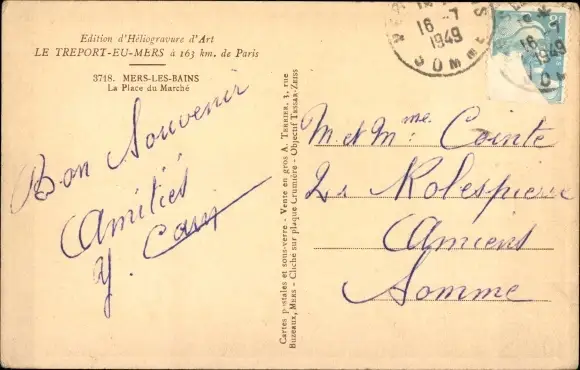 Edition d'Héliogravure d'Art
LE TREPORT-EU-MERS à 163 km. de Paris
3718. MERS-LES-BAINS
La Place du Marché
Bon Souvenir
Amitiés
Y.
Cartes postales et sous-verre - Vente en gros A. TERRIER, 3, rue
Buzeaux, MERS - Cliché sur plaque Crumière - Objectif TESSAR-ZEISS
16 -7
1949
SOMME
16 -7
1949
M et Mme Cointe
Amiens
Somme